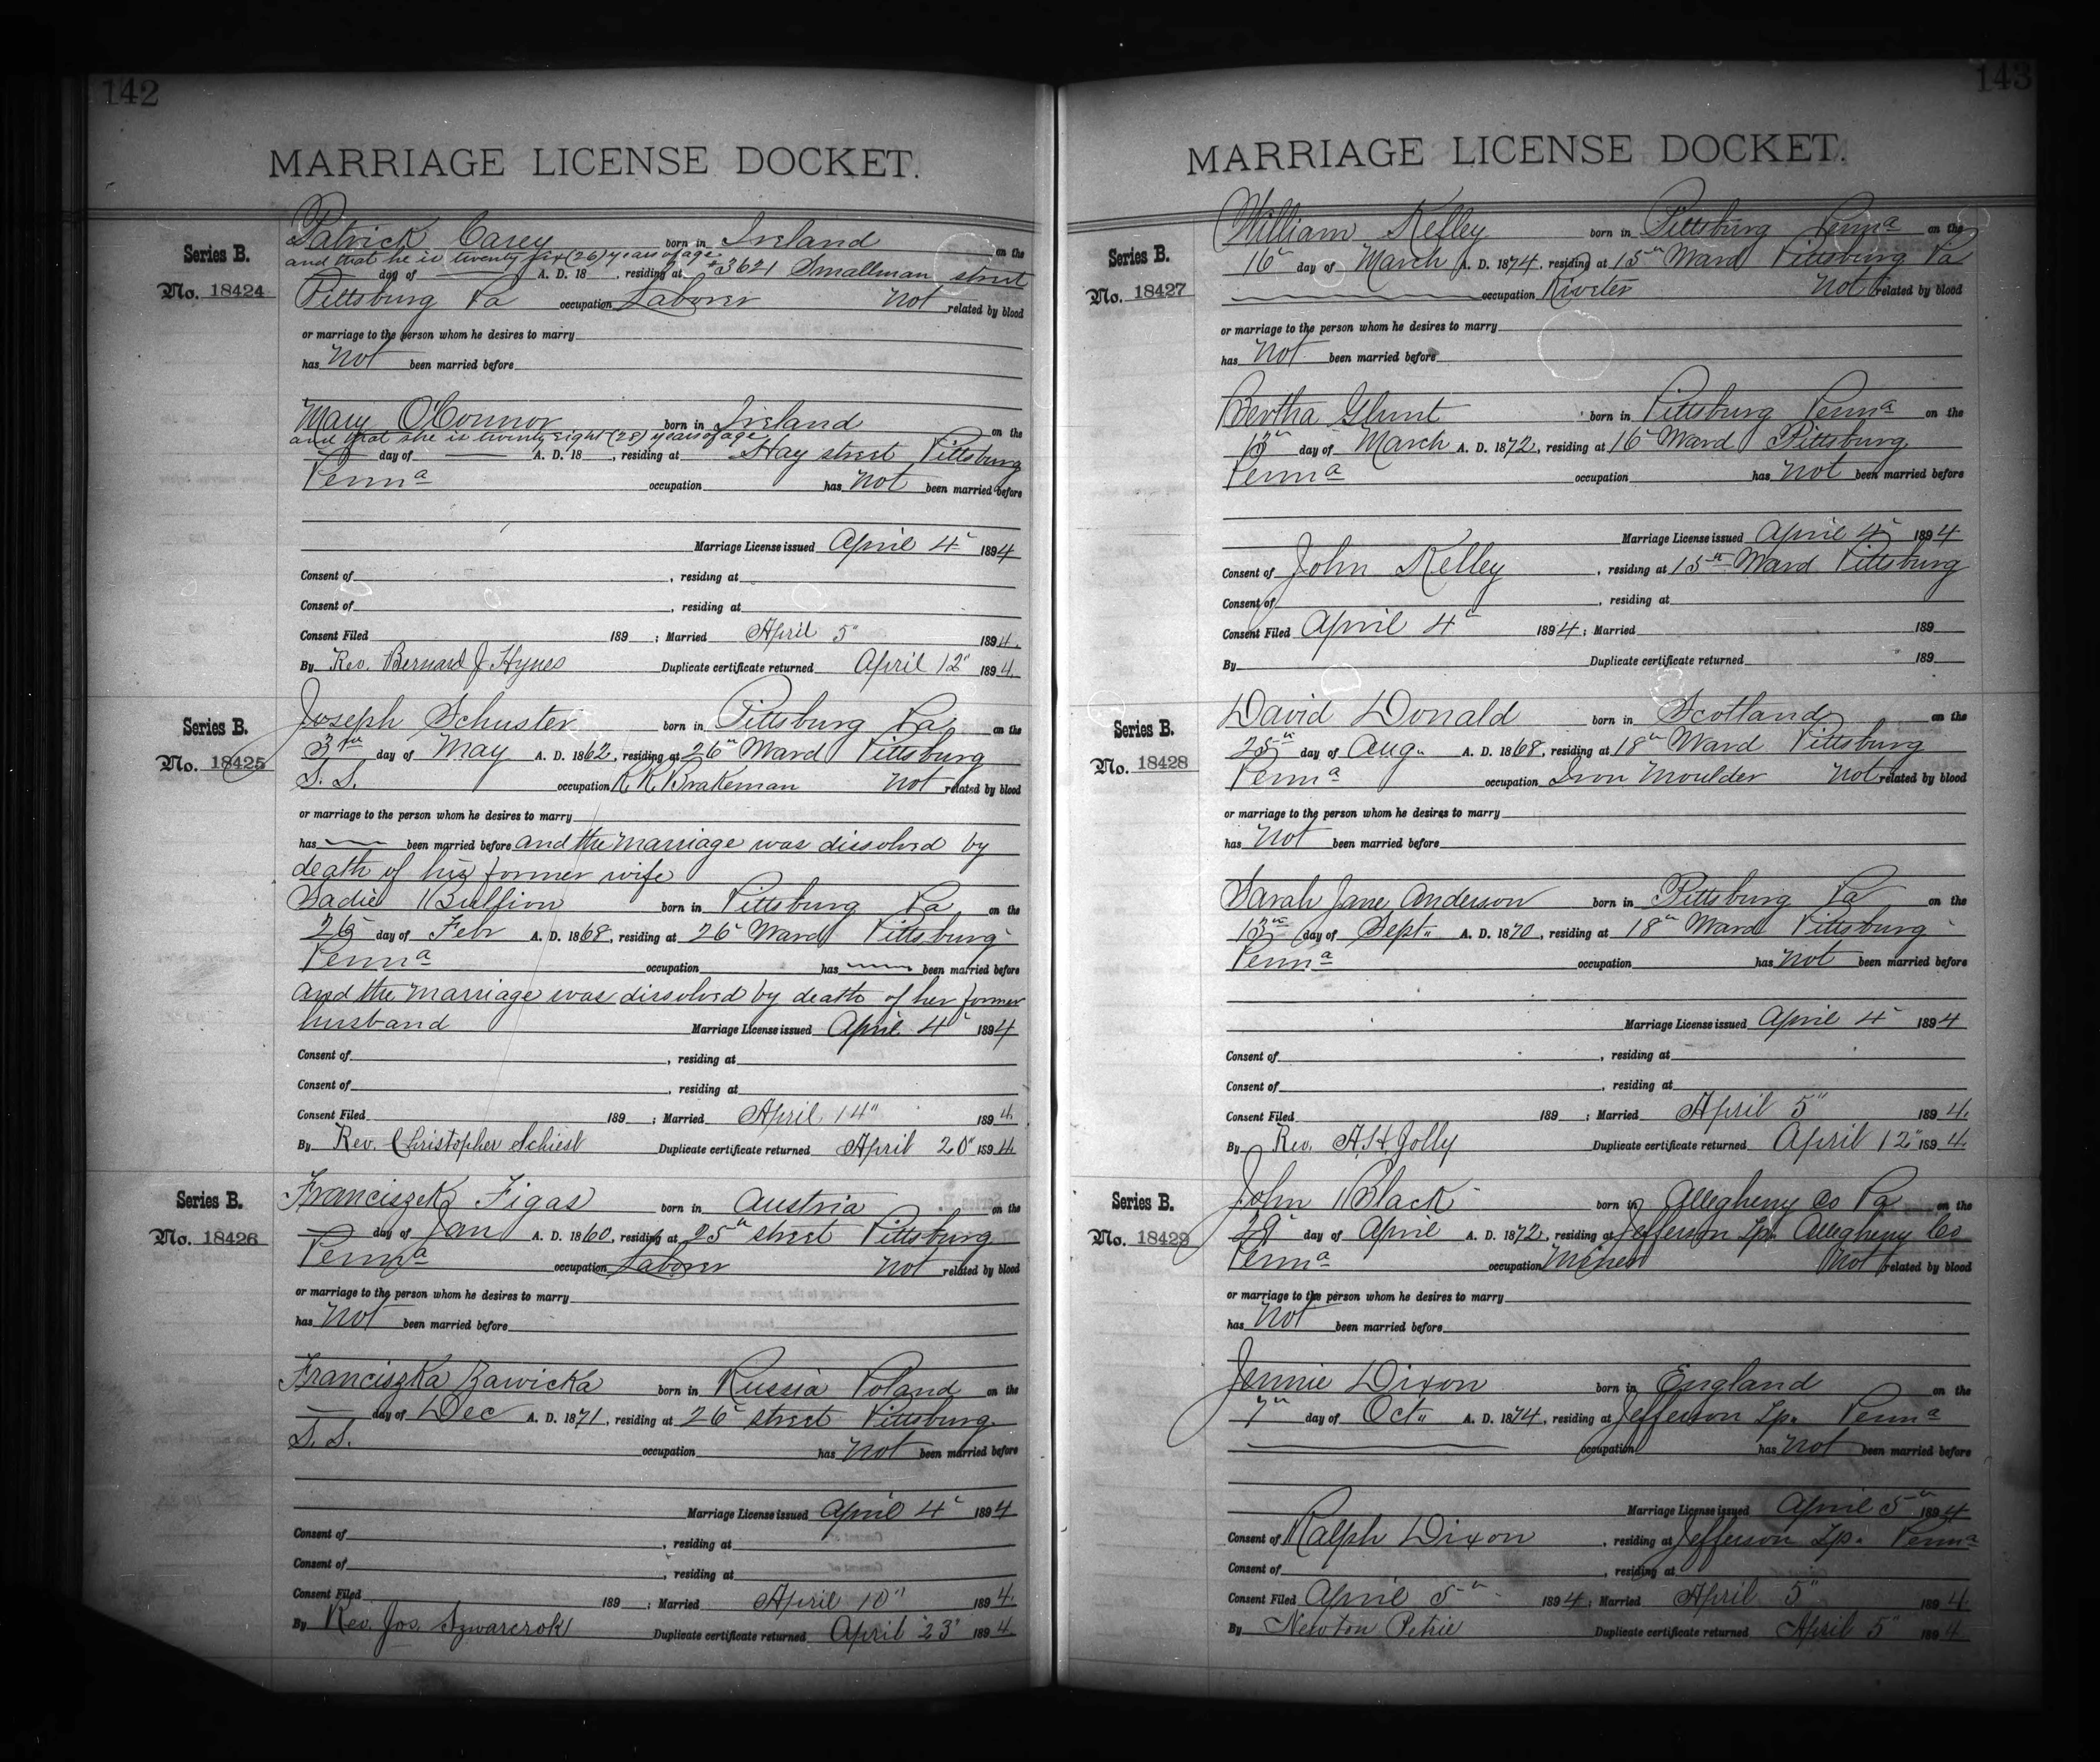 142
MARRIAGE LICENSE DOCKET.
Series B.
No. 18424
Patrick Carey born in Ireland on the
and that he is twenty six (26) years of age
day of A. D. 18 , residing at #3621 Smallman street
Pittsburg Pa occupation Laborer Not related by blood
or marriage to the person whom he desires to marry
has Not been married before
Mary O'Connor born in Ireland on the
and that she is twenty eight (28) years of age
day of A. D. 18 , residing at Hay street Pittsburg
Penna occupation has Not been married before
Marriage License issued April 4" 1894
Consent of , residing at
Consent of , residing at
Consent Filed 189 ; Married April 5" 1894.
By Rev. Bernard J Hynes Duplicate certificate returned April 12" 1894.
Series B.
No. 18425
Joseph Schuster born in Pittsburg Pa on the
3rd day of May A. D. 1862, residing at 26" Ward Pittsburg
S. S. occupation R. R. Brakeman Not related by blood
or marriage to the person whom he desires to marry
has been married before and the marriage was dissolved by
death of his former wife
Sadie Bullion born in Pittsburg Pa on the
26 day of Feb A. D. 1868, residing at 26" Ward Pittsburg
Penna occupation has been married before
and the marriage was dissolved by death of her former
husband Marriage License issued April 4" 1894
Consent of , residing at
Consent of , residing at
Consent Filed 189 ; Married April 14" 1894.
By Rev. Christopher Schiest Duplicate certificate returned April 20" 1894.
Series B.
No. 18426
Franciszek Figas born in Austria on the
day of Jan A. D. 1860, residing at 25" street Pittsburg
Penna occupation Laborer Not related by blood
or marriage to the person whom he desires to marry
has Not been married before
Franciszka Zawicka born in Russia Poland on the
day of Dec A. D. 1871, residing at 26" street Pittsburg
S. S. occupation has Not been married before
Marriage License issued April 4" 1894
Consent of , residing at
Consent of , residing at
Consent Filed 189 ; Married April 10" 1894.
By Rev. Jos. Duplicate certificate returned April 23" 1894.
143
MARRIAGE LICENSE DOCKET.
Series B.
No. 18427
William Kelley born in Pittsburg Penna on the
16" day of March A. D. 1874, residing at 15" Ward Pittsburg Pa
occupation Riveter Not related by blood
or marriage to the person whom he desires to marry
has Not been married before
Bertha Glunt born in Pittsburg Penna on the
day of March A. D. 1872, residing at 16" Ward Pittsburg
Penna occupation has Not been married before
Marriage License issued April 4" 1894
Consent of John Kelley , residing at 15" Ward Pittsburg
Consent of , residing at
Consent Filed April 4" 1894; Married 189
By Duplicate certificate returned 189
Series B.
No. 18428
David Donald born in Scotland on the
25" day of Aug. A. D. 1868, residing at 18" Ward Pittsburg
Penna occupation Iron Moulder Not related by blood
or marriage to the person whom he desires to marry
has Not been married before
Sarah Jane Anderson born in Pittsburg Pa on the
13" day of Sept. A. D. 1870, residing at 18" Ward Pittsburg
Penna occupation has Not been married before
Marriage License issued April 4" 1894
Consent of , residing at
Consent of , residing at
Consent Filed 189 ; Married April 5" 1894.
By Rev. A. H. Jolly Duplicate certificate returned April 12" 1894.
Series B.
No. 18429
John Black born in Allegheny Co Pa on the
28" day of April A. D. 1872, residing at Jefferson Tp. Allegheny Co
Penna occupation Miner Not related by blood
or marriage to the person whom he desires to marry
has Not been married before
Jennie Dixon born in England on the
7" day of Oct. A. D. 1874, residing at Jefferson Tp. Penna
occupation has Not been married before
Marriage License issued April 5" 1894
Consent of Ralph Dixon , residing at Jefferson Tp. Penna
Consent of , residing at
Consent Filed April 5" 1894; Married April 5" 1894.
By Newton Petrie Duplicate certificate returned April 5" 1894